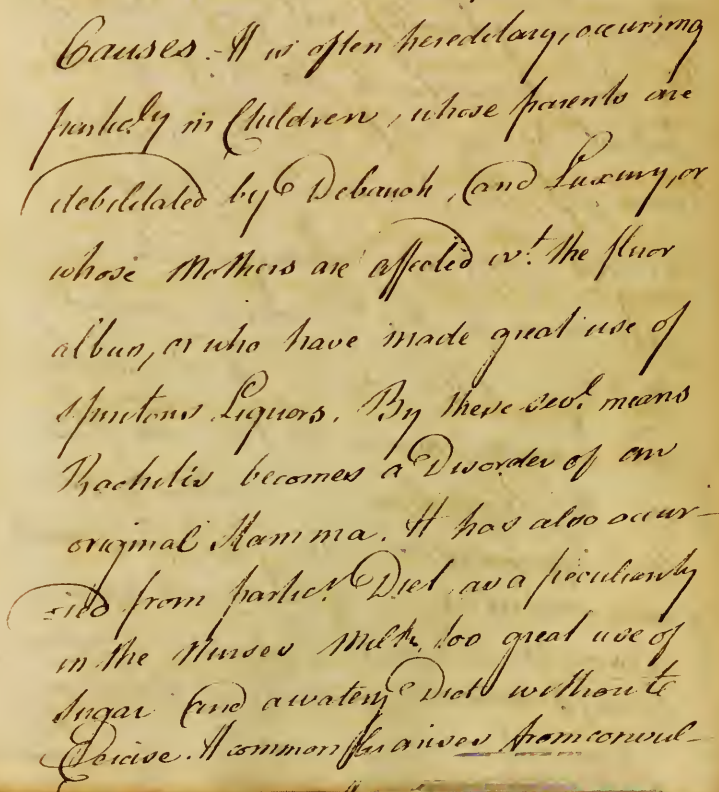 Causes. - It is often hereditary, occuring
particly in Children, whose parents are
debilitated by Debauch, and Luxury, or
whose Mothers are affected wt. the fluor
albus, or who have made great use of
spiritous Liquors. By these sevl. means
Rachitis becomes a Disorder of an
original Stamma. It has also occur-
-red from particr. Diet as a peculiarity
in the Nurses Milk, too great use of
Sugar and a watery Diet without
Exercise. It commonly arises from convul-